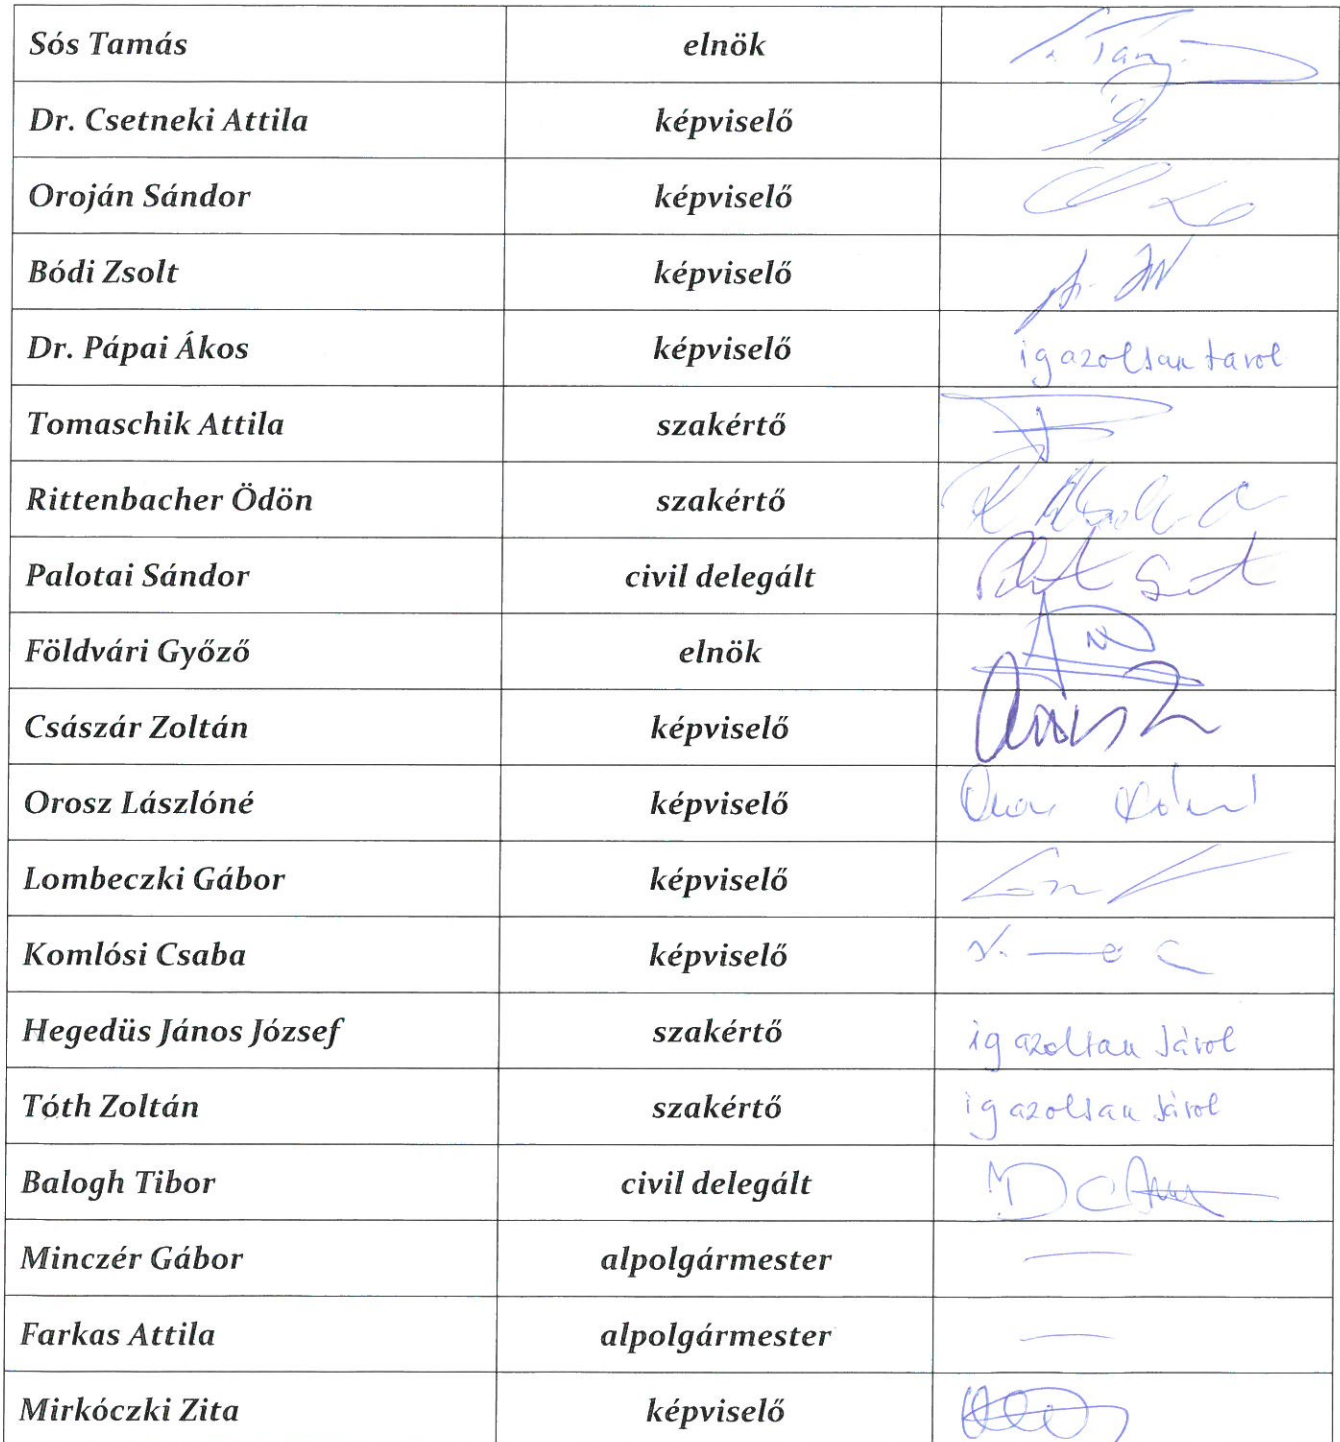 Sós Tamás elnök
Dr. Csetneki Attila képviselő
Oroján Sándor képviselő
Bódi Zsolt képviselő
Dr. Pápai Ákos képviselő igazoltan távol
Tomaschik Attila szakértő
Rittenbacher Ödön szakértő
Palotai Sándor civil delegált
Földvári Győző elnök
Császár Zoltán képviselő
Orosz Lászlóné képviselő
Lombeczki Gábor képviselő
Komlósi Csaba képviselő
Hegedüs János József szakértő igazoltan távol
Tóth Zoltán szakértő igazoltan távol
Balogh Tibor civil delegált
Minczér Gábor alpolgármester —
Farkas Attila alpolgármester —
Mirkóczki Zita képviselő